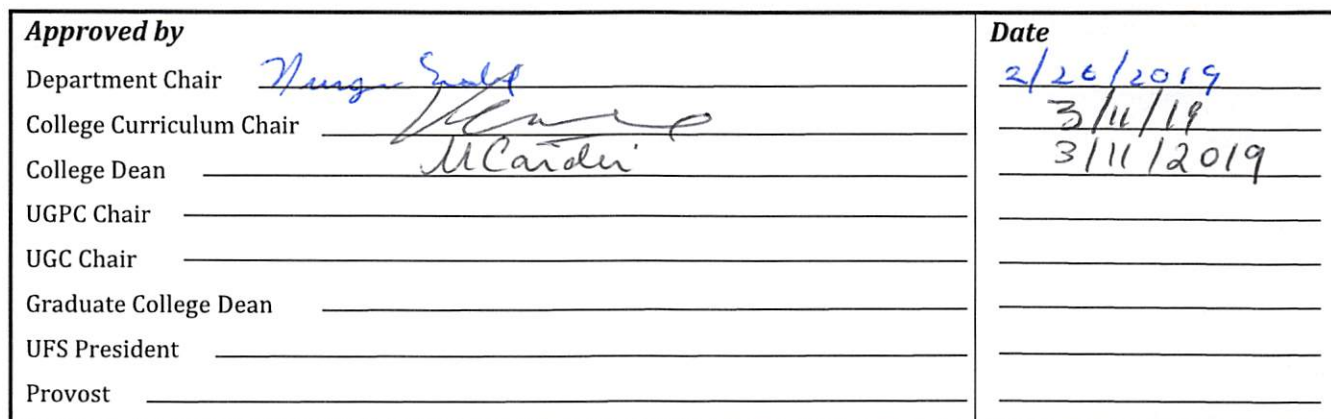 Approved by Date
Department Chair 2/26/2019
College Curriculum Chair 3/11/19
College Dean MCardei 3/11/2019
UGPC Chair
UGC Chair
Graduate College Dean
UFS President
Provost